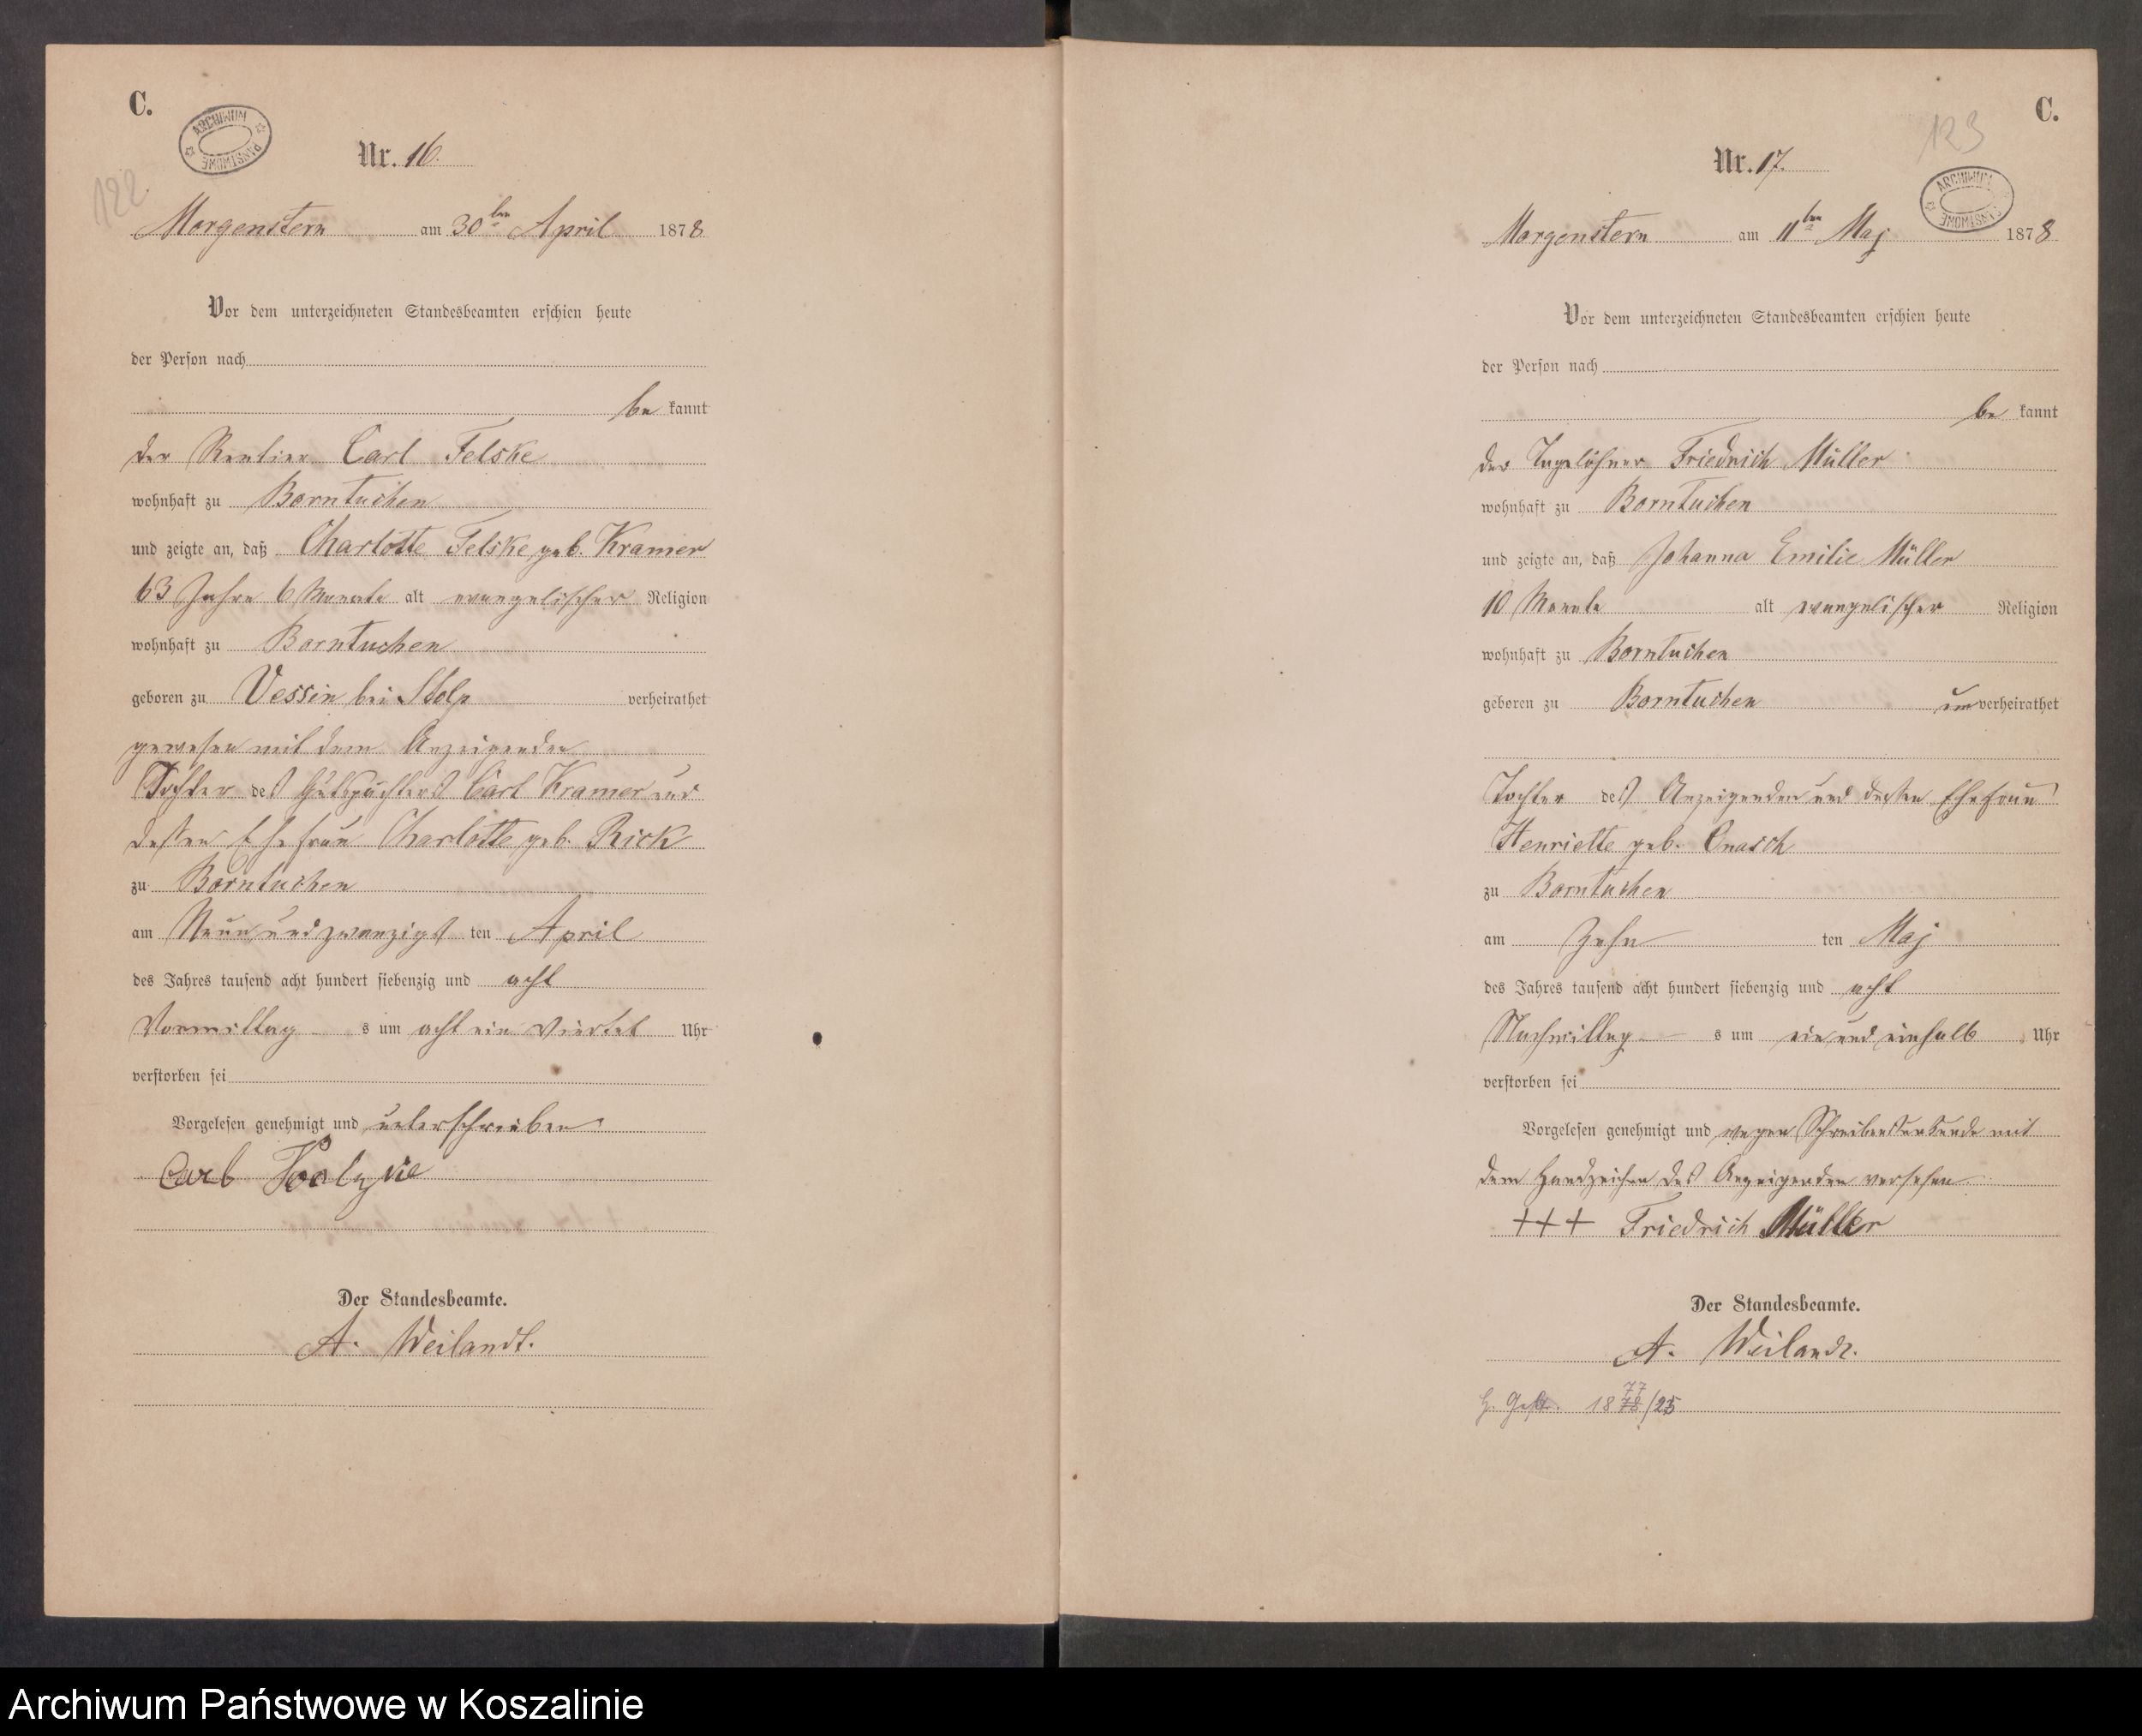 C.
ARCHIWUM PAŃSTWOWE
122
Nr. 16.
Morgenstern am 30ten April 1878
Vor dem unterzeichneten Standesbeamten erschien heute
der Person nach
be kannt
der Rentier Carl Felske
wohnhaft zu Borntuchen
und zeigte an, daß Charlotte Felske geb. Kramer
63 Jahre 6 Monate alt evangelischer Religion
wohnhaft zu Borntuchen
geboren zu Vessin bei Stolp verheirathet
gewesen mit dem Anzeigenden
Tochter des Gutspächters Carl Kramer und
dessen Ehefrau Charlotte geb. Rick
zu Borntuchen
am Neun und zwanzigst ten April
des Jahres tausend acht hundert siebenzig und acht
Vormittag s um acht ein Viertel Uhr
verstorben sei
Vorgelesen genehmigt und unterschrieben
Carl
Der Standesbeamte.
A. Weilandt.
C.
123
ARCHIWUM PAŃSTWOWE
Nr. 17.
Morgenstern am 11ten Maj 1878
Vor dem unterzeichneten Standesbeamten erschien heute
der Person nach
be kannt
der Tagelöhner Friedrich Müller
wohnhaft zu Borntuchen
und zeigte an, daß Johanna Emilie Müller
10 Monate alt evangelischer Religion
wohnhaft zu Borntuchen
geboren zu Borntuchen unverheirathet
Tochter des Anzeigenden und dessen Ehefrau
Henriette geb. Onasch
zu Borntuchen
am Zehn ten Maj
des Jahres tausend acht hundert siebenzig und acht
Nachmittag s um ein und einhalb Uhr
verstorben sei
Vorgelesen genehmigt und wegen Schreibensunkunde mit
dem Handzeichen des Anzeigenden versehen
+++ Friedrich Müller
Der Standesbeamte.
A. Weilandt.
18 77 78/25
Archiwum Państwowe w Koszalinie